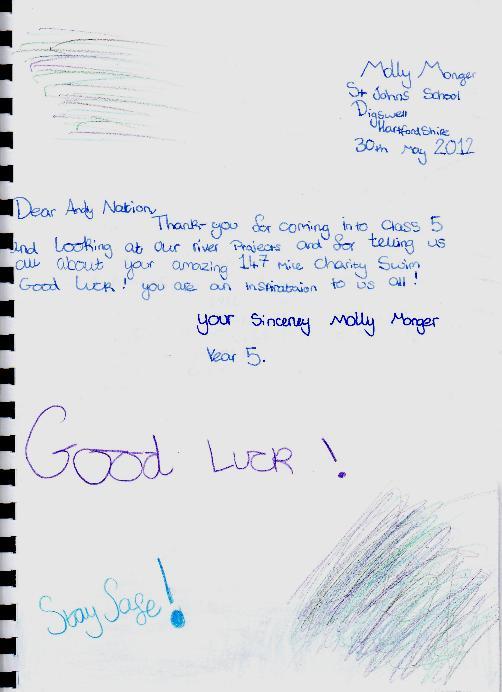 Molly Monger
St Johns School
Digswell
Hartfordshire
30th May 2012
Dear Andy Nation,
Thank-you for coming into class 5
and Looking at our river Projects and for telling us
all about your amazing 147 mile Charity Swim
Good Luck! you are an inspirataion to us all!
your Sincerley Molly Monger
Year 5.
Good Luck!
Stay Safe!